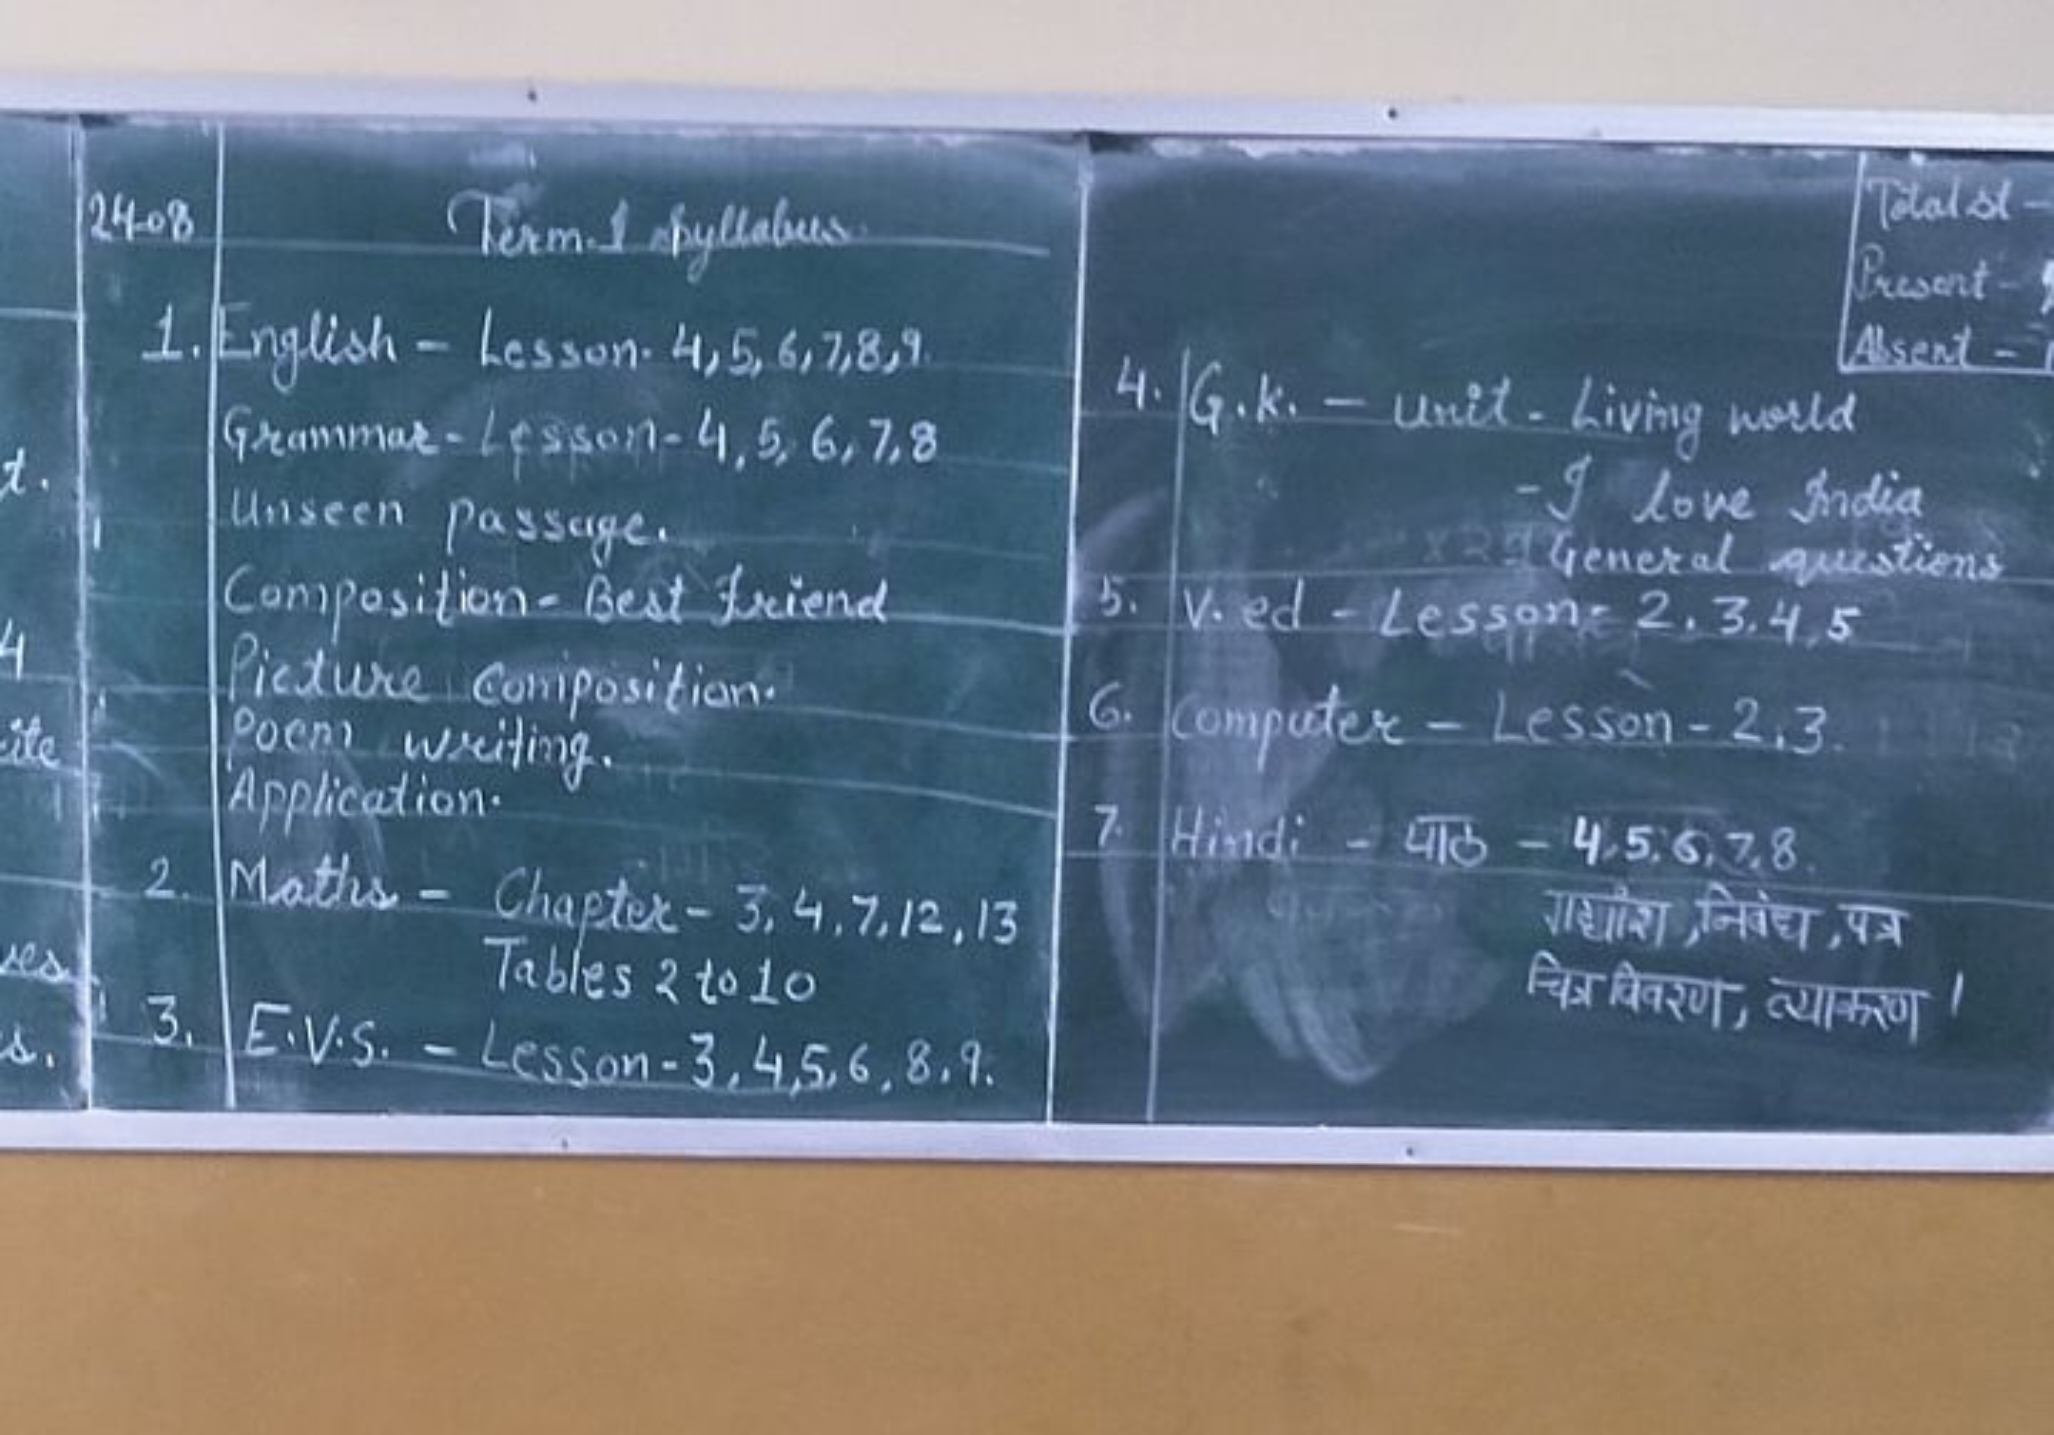 24-08
Term-1 Syllabus
1. English - Lesson. 4,5,6,7,8,9.
Grammar - Lesson - 4,5,6,7,8
Unseen passage.
Composition - Best friend
Picture composition.
Poem writing.
Application.
2. Maths - Chapter - 3,4,7,12,13
Tables 2 to 10
3. E.V.S. - Lesson - 3,4,5,6,8,9.
t.
4
s.
Total st -
Present -
Absent -
4. G.K. - Unit - Living world
- I love India
General questions
5. V.ed - Lesson - 2.3.4,5
6. Computer - Lesson - 2,3.
7. Hindi - पाठ - 4,5,6,7,8.
गद्यांश, निबंध, पत्र
चित्र विवरण, व्याकरण ।